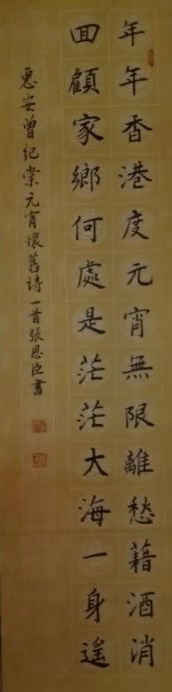 年年香港度元宵無限離愁藉酒消
回顧家鄉何處是茫茫大海一身遙
惠安曾紀棠元宵懷舊詩一首張恩臣書